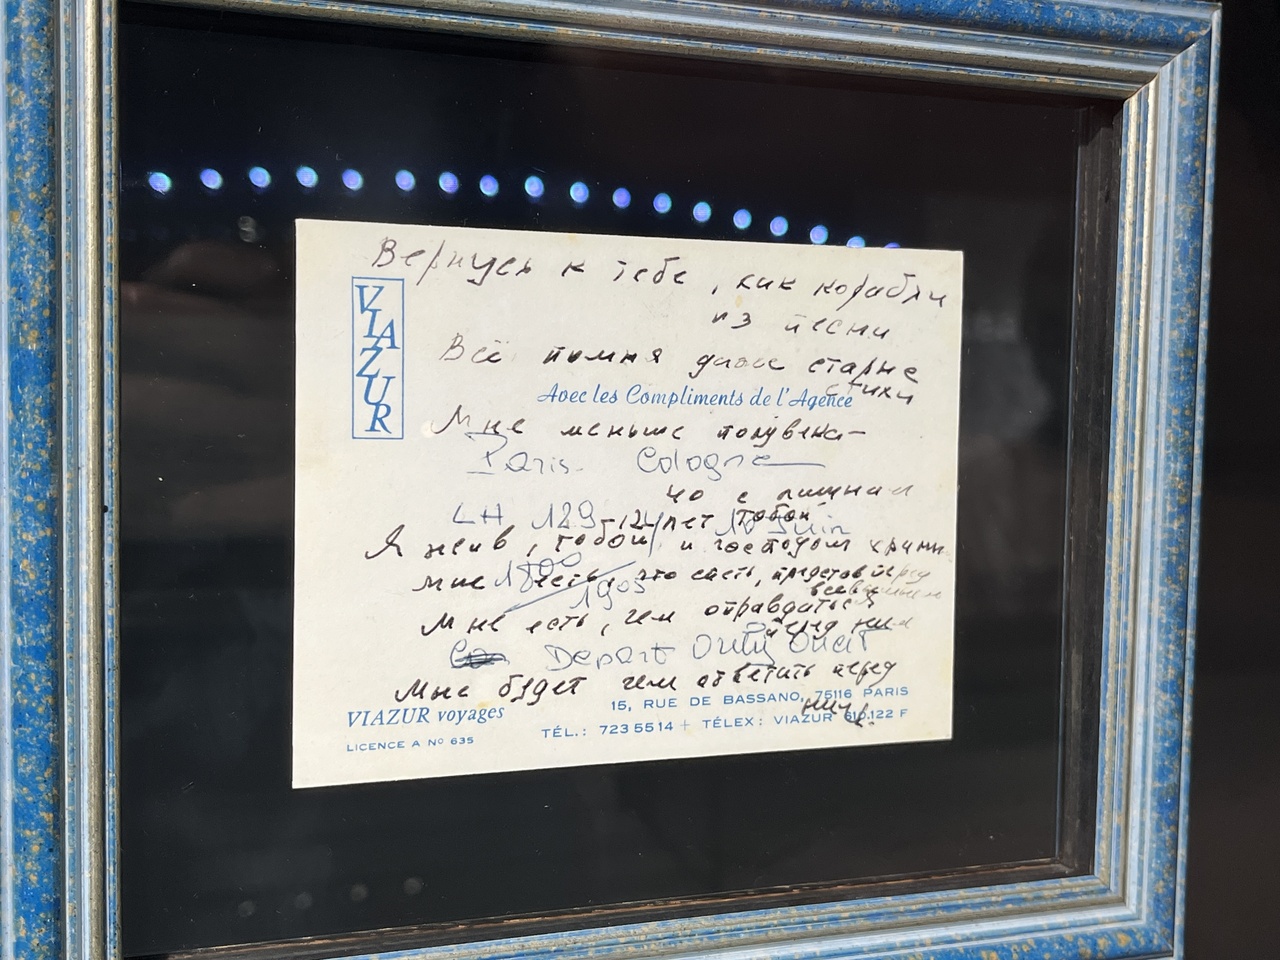 Вернусь к тебе, как корабли
из песни
VIAZUR
Всё помня даже старые
стихи
Avec les Compliments de l'Agence
Мне меньше полувека –
Paris. Cologne
40 с лишним
LH 129
12 лет тобой
10 Juin
Я жив, тобой и господом храним
1800
Мне есть, что спеть, представ перед
всевышним
1905
Мне есть, чем оправдаться
перед ним
Depart Orly Ouest
Мне будет чем ответить перед
ним.
15, RUE DE BASSANO, 75116 PARIS
VIAZUR voyages
TÉL.: 723 55 14 + TÉLEX: VIAZUR 610.122 F
LICENCE A Nº 635